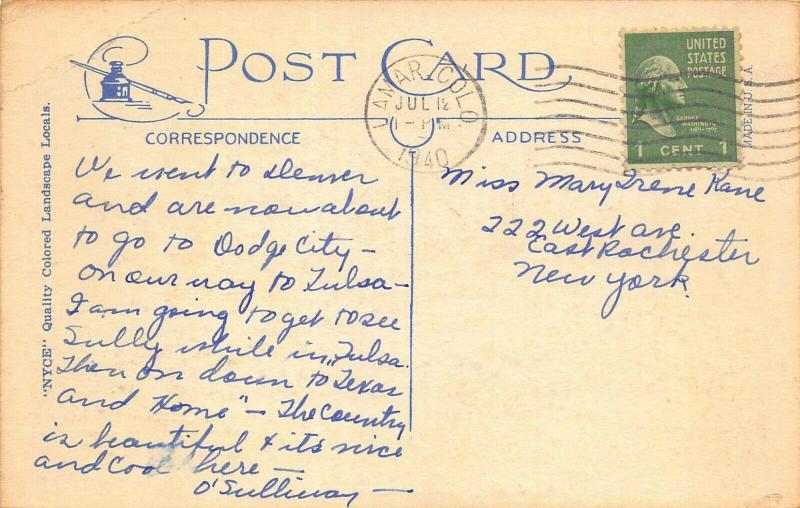 POST CARD
LAMAR, COLO
JUL 12
1-PM
1940
UNITED
STATES
POSTAGE
GEORGE
WASHINGTON
1789-1797
1 CENT 1
MADE IN U.S.A.
CORRESPONDENCE
ADDRESS
"NYCE" Quality Colored Landscape Locals.
We went to Denver
and are now about
to go to Dodge City -
on our way to Tulsa -
I am going to get to see
Sully while in Tulsa.
Then on down to "Texas
and Home" - The Country
is beautiful & its nice
and cool here -
O'Sullivan -
Miss Mary Irene Kane
222 West ave.
East Rochester
New York.